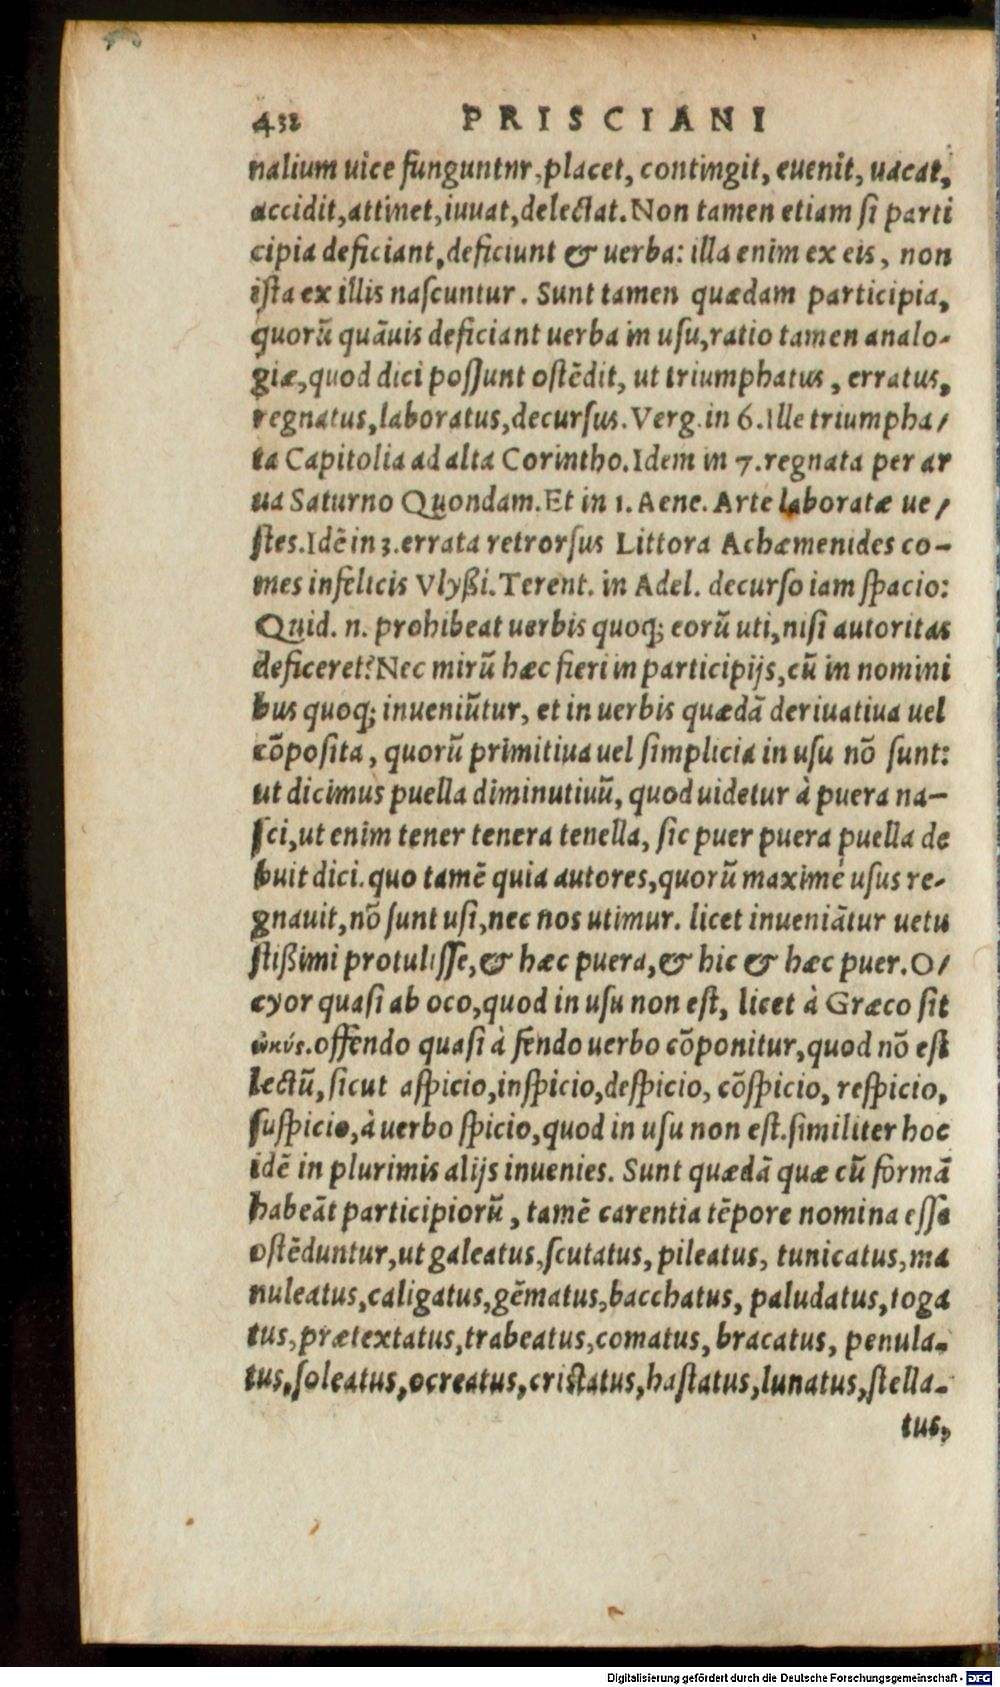 432 PRISCIANI
nalium uice funguntnr, placet, contingit, euenit, uacat,
accidit, attinet, iuuat, delectat. Non tamen etiam si parti
cipia deficiant, deficiunt & uerba: illa enim ex eis, non
ista ex illis nascuntur. Sunt tamen quædam participia,
quorũ quãuis deficiant uerba in usu, ratio tamen analo-
giæ, quod dici possunt ostẽdit, ut triumphatus, erratus,
regnatus, laboratus, decursus. Verg. in 6. Ille triumpha/
ta Capitolia ad alta Corintho. Idem in 7. regnata per ar
ua Saturno Quondam. Et in 1. Aene. Arte laboratæ ue/
stes. Idẽ in 3. errata retrorsus Littora Achæmenides co-
mes infelicis Vlyßi. Terent. in Adel. decurso iam spacio:
Quid. n. prohibeat uerbis quoq; eorũ uti, nisi autoritas
deficeret? Nec mirũ hæc fieri in participijs, cũ in nomini
bus quoq; inueniũtur, et in uerbis quædã deriuatiua uel
cõposita, quorũ primitiua uel simplicia in usu nõ sunt:
ut dicimus puella diminutiuũ, quod uidetur à puera na-
sci, ut enim tener tenera tenella, sic puer puera puella de
buit dici. quo tamẽ quia autores, quorũ maximè usus re-
gnauit, nõ sunt usi, nec nos utimur. licet inueniãtur uetu
stißimi protulisse, & hæc puera, & hic & hæc puer. O/
cyor quasi ab oco, quod in usu non est, licet à Græco sit
ὠκύς. offendo quasi à fendo uerbo cõponitur, quod nõ est
lectũ, sicut aspicio, inspicio, despicio, cõspicio, respicio,
suspicio, à uerbo spicio, quod in usu non est. similiter hoc
idẽ in plurimis alijs inuenies. Sunt quædã quæ cũ formã
habeãt participiorũ, tamẽ carentia tẽpore nomina esse
ostẽduntur, ut galeatus, scutatus, pileatus, tunicatus, ma
nuleatus, caligatus, gẽmatus, bacchatus, paludatus, toga
tus, prætextatus, trabeatus, comatus, bracatus, penula-
tus, soleatus, ocreatus, cristatus, hastatus, lunatus, stella-
tus,
Digitalisierung gefördert durch die Deutsche Forschungsgemeinschaft - DFG